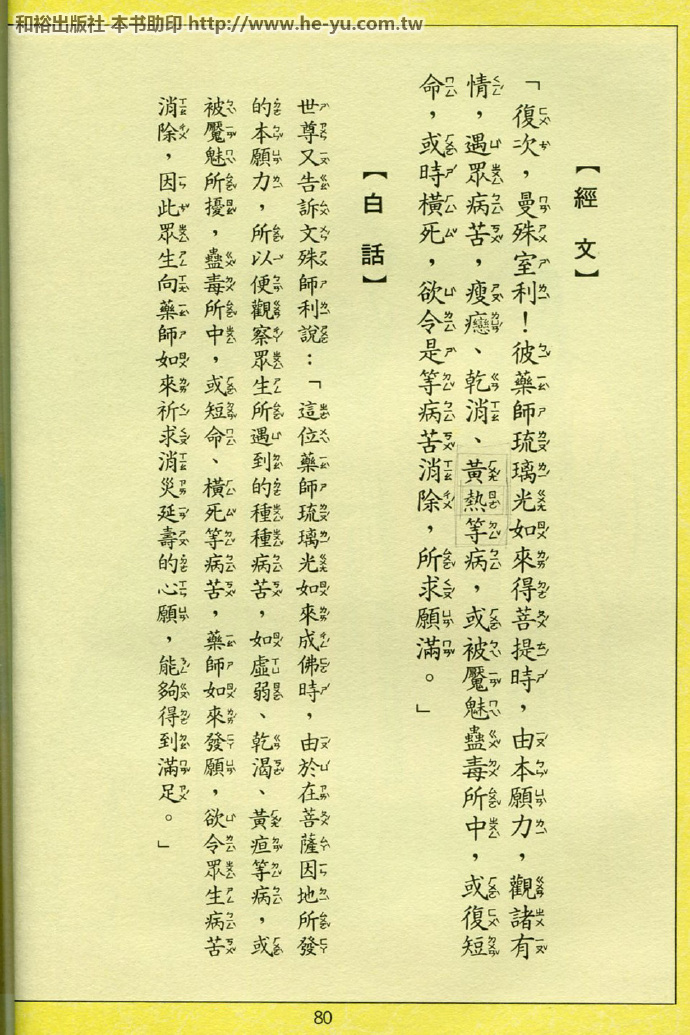 和裕出版社 本书助印 http://www.he-yu.com.tw
【經文】
「復次，曼殊室利！彼藥師琉璃光如來得菩提時，由本願力，觀諸有
情，遇眾病苦，瘦癴、乾消、黃熱等病，或被魘魅蠱毒所中，或復短
命，或時橫死，欲令是等病苦消除，所求願滿。」
【白話】
世尊又告訴文殊師利說：「這位藥師琉璃光如來成佛時，由於在菩薩因地所發
的本願力，所以便觀察眾生所遇到的種種病苦，如虛弱、乾渴、黃疸等病，或
被魘魅所擾，蠱毒所中，或短命、橫死等病苦，藥師如來發願，欲令眾生病苦
消除，因此眾生向藥師如來祈求消災延壽的心願，能夠得到滿足。」
80